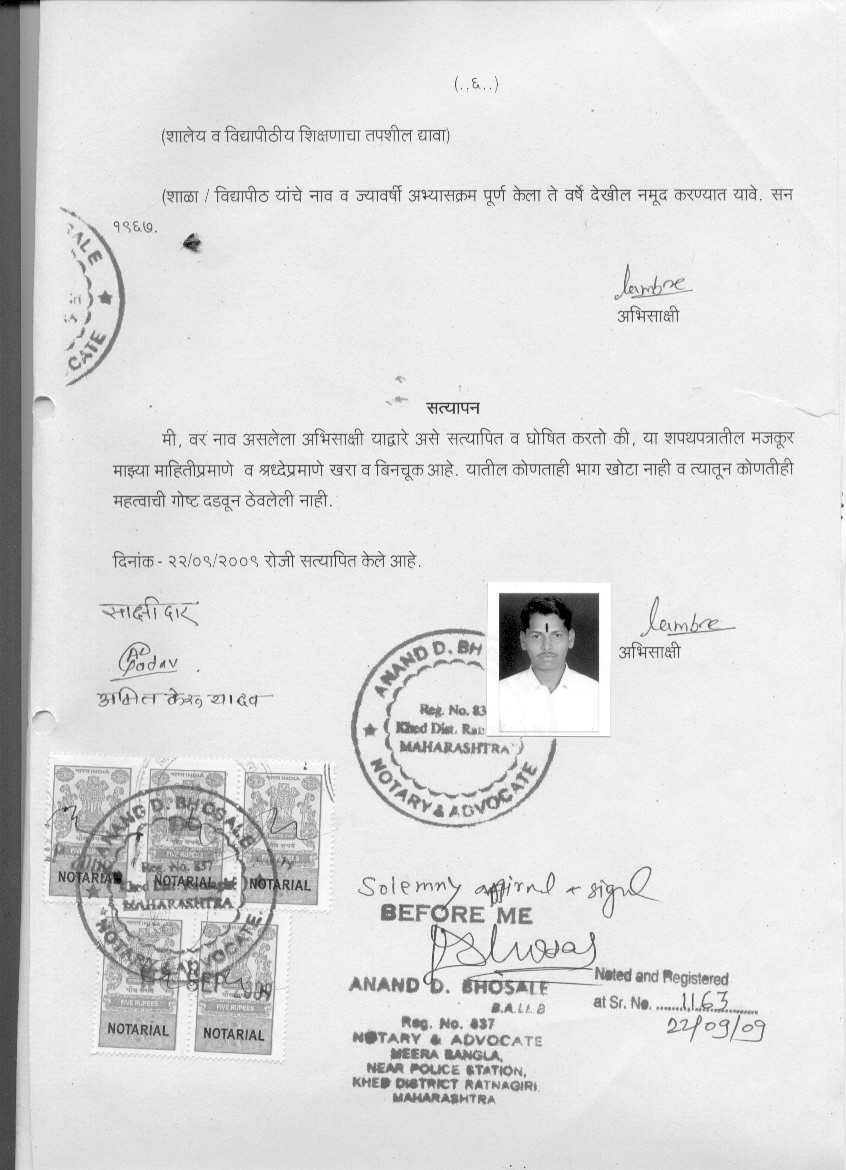 (..६..)
(शालेय व विद्यापीठीय शिक्षणाचा तपशील द्यावा)
(शाळा / विद्यापीठ यांचे नाव व ज्यावर्षी अभ्यासक्रम पूर्ण केला ते वर्षे देखील नमूद करण्यात यावे. सन
१९६७.
SALE
CATE
अभिसाक्षी
सत्यापन
मी, वर नाव असलेला अभिसाक्षी याद्वारे असे सत्यापित व घोषित करतो की, या शपथपत्रातील मजकूर
माझ्या माहितीप्रमाणे व श्रध्देप्रमाणे खरा व बिनचूक आहे. यातील कोणताही भाग खोटा नाही व त्यातून कोणतीही
महत्वाची गोष्ट दडवून ठेवलेली नाही.
दिनांक - २२/०९/२००९ रोजी सत्यापित केले आहे.
साक्षीदार
अमित केरू यादव
अभिसाक्षी
ANAND D. BH
Reg. No. 83
Khed Dist. Rat
MAHARASHTRA
NOTARY & ADVOCATE
भारत INDIA
ANAND D. BHOSALE
Reg. No. 837
MAHARASHTRA
NOTARY & ADVOCATE
FIVE RUPEES
NOTARIAL NOTARIAL NOTARIAL
FIVE RUPEES FIVE RUPEES
NOTARIAL NOTARIAL
Solemny affirmd & signd
BEFORE ME
ANAND D. BHOSALE
B.A.LL.B
Reg. No. 837
NOTARY & ADVOCATE
MEERA BANGLA,
NEAR POLICE STATION,
KHED DISTRICT RATNAGIRI.
MAHARASHTRA
Noted and Registered
at Sr. No. 1163
22/09/09